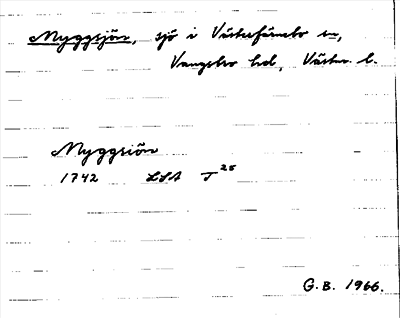 Myggsjön, sjö i Västerfärnebo sn,
Vangsbro hd, Västm. l.
Myggsiön
1742 LSA T 25
G.B. 1966.